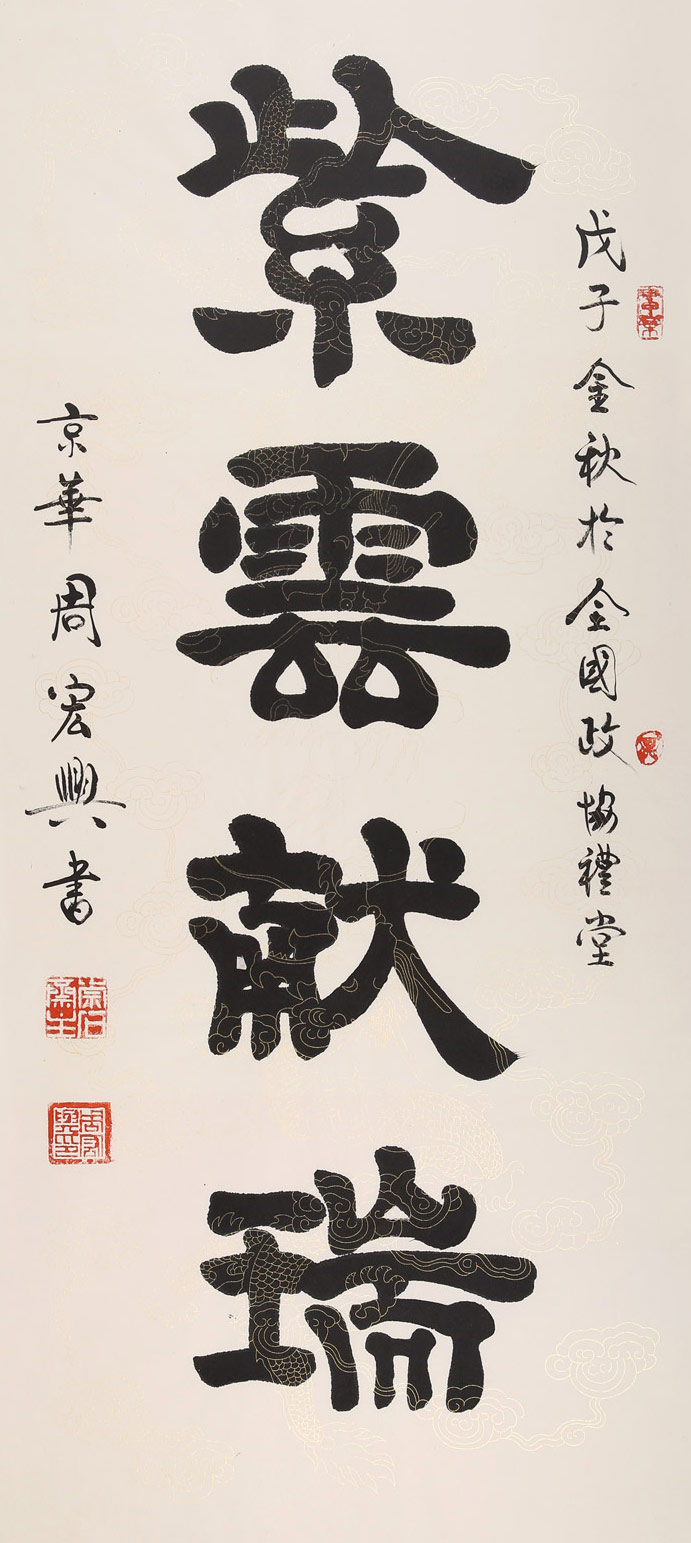 戊子金秋於全國政協禮堂
紫雲献瑞
京華周宏興書
周宏興印